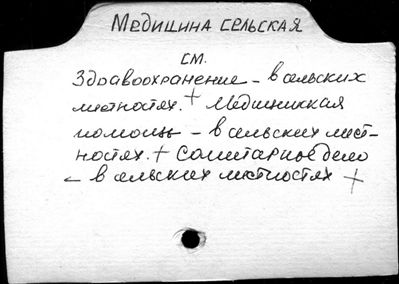 Медицина сельская
см.
Здравоохранение - в сельских
местностях. + Медицинская
помощь - в сельских мест-
ностях. + Санитарное дело
- в сельских местностях +